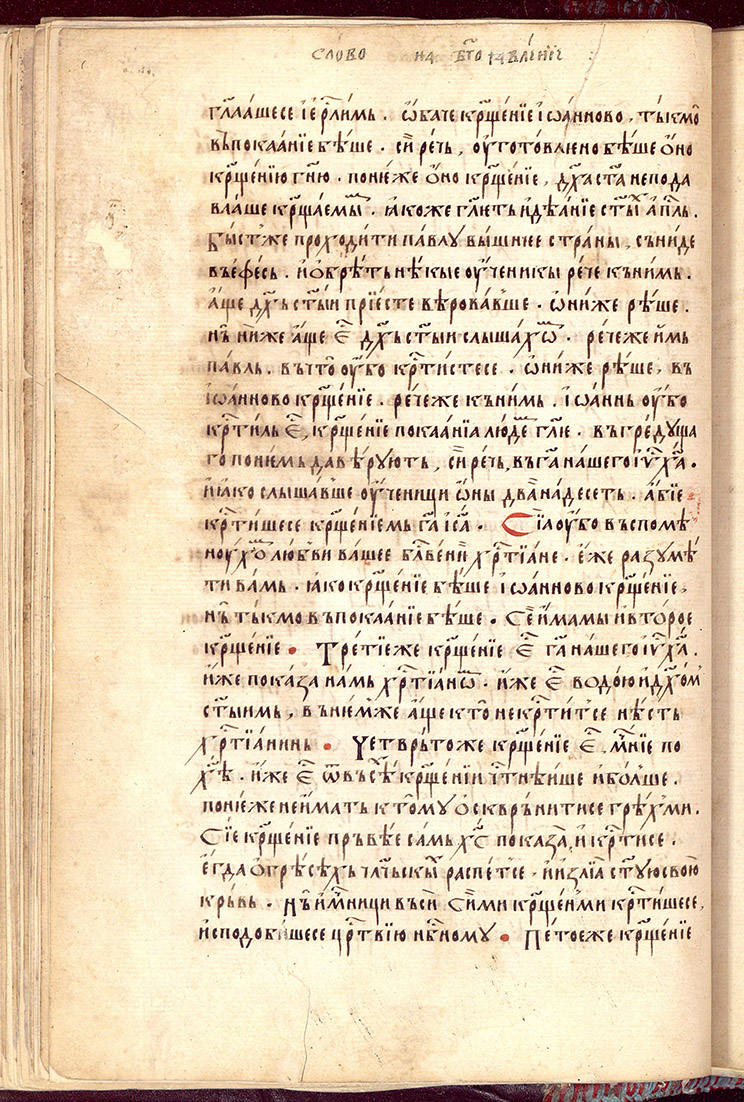 слово на бг҃оꙗвлені́е
гл҃аа́шесе і҆ер҇ли́мь . ѡ҆́баче кр҃ще́нїе і҆ѡа́нново , тъ́кмо
въпокаа́нїе бѣ́ше . си́ речь , оу҆гото́влѥно бѣ́ше ѻ҆́но
кр҃ще́нїю гн҃ю . поне́же ѻ҆́но кр҃ще́нїе , дх҃а ст҃а непода
влꙗ́ше кр҃ща́емыⷨ . ꙗ҆́коже гл҃ѥть и҆дѣа́нїе ст҃ыⷯ а҆пⷭ҇ль .
Бы́стже проходи́ти па́влꙋ вы́шнѥе стра́ны , съни́де
въе́фесь . и҆ѡбрѣ́ть нѣ́кые оу҆ченикы́ рече къни́мь .
а҆́ще дх҃ь ст҃ы́и прїе́сте вѣ́рова́вше . ѡ҆ни́же рѣ́ше .
нь̀ ни́же а҆́ще ѥⷭ҇ дх҃ь ст҃ы́и слы́шахѡⷨ . ре́чеже и҆̀мь
па́вль . въчто̀ оу҆́бо крⷭ҇ти́стесе . ѡ҆ни́же рѣ́ше , въ
і҆ѡа́нново кр҃ще́нїе . ре́чеже къни́мь . і҆ѡа́ннь оу҆́бо
крⷭ҇ти́ль ѥⷭ҇ , кр҃ще́нїе покаа́нїа лю́демⷨ гл҃ѥ . въгре́дꙋща
го поне́мь да вѣ́рꙋють , си́ речь , въга҃ на́шего і҆ꙋ҃ х҃а .
и҆е҆ли́ко слы́шавше оу҆́ченици ѡ҆́ны два́надесеть . а҆́бїе
крⷭ҇ти́шесе кр҃ще́нїемь га҃ і҆са҃ . Сїа̀ оу҆́бо въспомѣ
нꙋ́хѡⷨ любви ва́шее блⷭ҇ве́нїи хрⷭ҇тїа́не . е҆́же разꙋмѣ́
ти ва́мь . ꙗ҆́ко кр҃ще́нїе бѣ́ше і҆ѡа́нново кр҃ще́нїе ,
нь̀ тъ́кмо въпокаа́нїе бѣ́ше . Се́ и҆́мамы и҆ вто́рое
кр҃ще́нїе . Тре́тїеже кр҃ще́нїе ѥⷭ҇ га҃ на́шего і҆ꙋ҃ х҃а .
и҆́же пока́за на́мь хрⷭ҇тїа́нѡⷨ . и҆́же ѥⷭ҇ водо́ю и҆ дх҃о́мⷨ
ст҃ы́имь , въне́мже а҆́ще кто̀ некрⷭ҇ти́тсе нѣ́сть
хрⷭ҇тїа́нинь . Четврь́тоже кр҃ще́нїе ѥⷭ҇ , мⷱ҇нїе по
хⷭ҇ѣ . и҆́же ѥⷭ҇ ѿ въсѣ́ⷯ кр҃ще́нїи чⷭ҇тнѣ́ише и҆ бо́лше .
поне́же неи҆́мать ктомꙋ̀ ѻ҆сквръни́тисе грѣ́хми .
Сїѐ кр҃ще́нїе пръвѣ́е са́мь хⷭ҇ пока́за , и҆ крⷭ҇ти́се .
е҆гда̀ ѻ҆грѣсѣ́хь чл҃чьскыⷯ распе́тсе . и҆ и҆злїа̀ ст҃ꙋ́ю свою̀
крь́вь . Нь̀ и҆ мⷱ҇ници въси̏ си́ми кр҃ще́нми крⷭ҇ти́шесе ,
и҆ сподо́бишесе црⷭ҇твїю нб҃номꙋ . Пе́тоеже кр҃ще́нїе